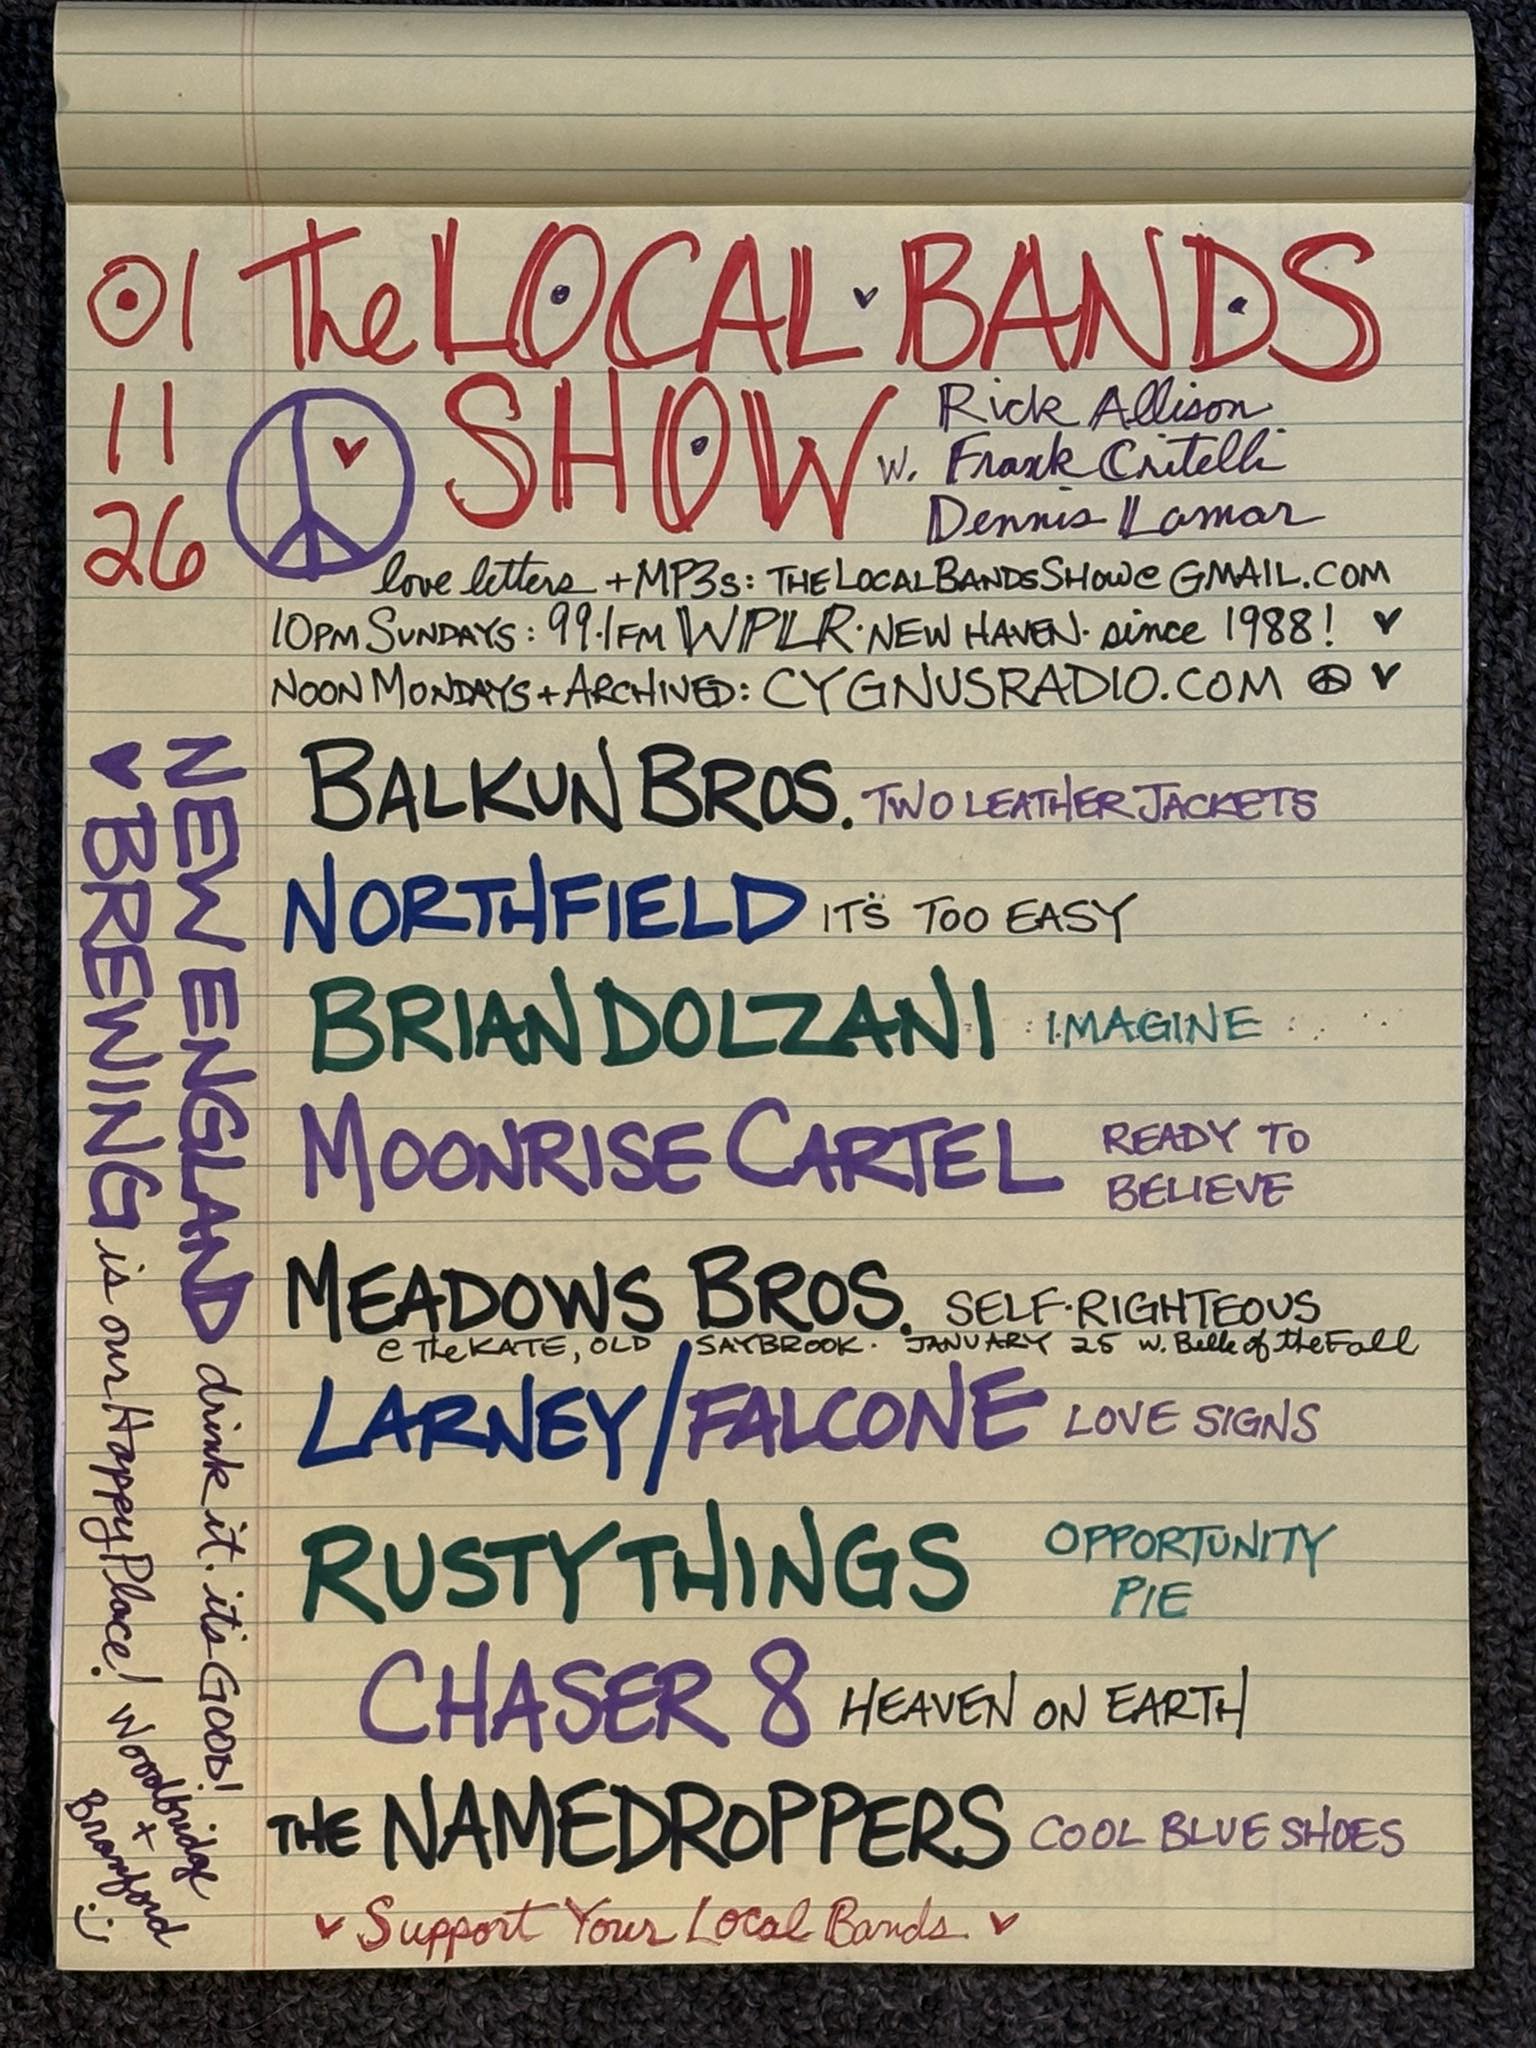 01
11
26
The LOCAL BANDS
SHOW
Rick Allison
w. Frank Critelli
Dennis Lamar
love letters + MP3s: THELOCALBANDSSHOW@GMAIL.COM
10PM SUNDAYS: 99.1FM WPLR · NEW HAVEN · since 1988!
NOON MONDAYS + ARCHIVED: CYGNUSRADIO.COM
BALKUN BROS. TWO LEATHER JACKETS
NORTHFIELD IT'S TOO EASY
BRIAN DOLZANI IMAGINE
MOONRISE CARTEL READY TO
BELIEVE
MEADOWS BROS. SELF-RIGHTEOUS
@ The KATE, OLD SAYBROOK. JANUARY 25 w. Belle of the Fall
LARNEY/FALCONE LOVE SIGNS
RUSTY THINGS OPPORTUNITY
PIE
CHASER 8 HEAVEN ON EARTH
THE NAMEDROPPERS COOL BLUE SHOES
Support Your Local Bands.
NEW ENGLAND drink it. it's GOOD!
BREWING is our Happy Place! Woodbridge
+
Branford
:)